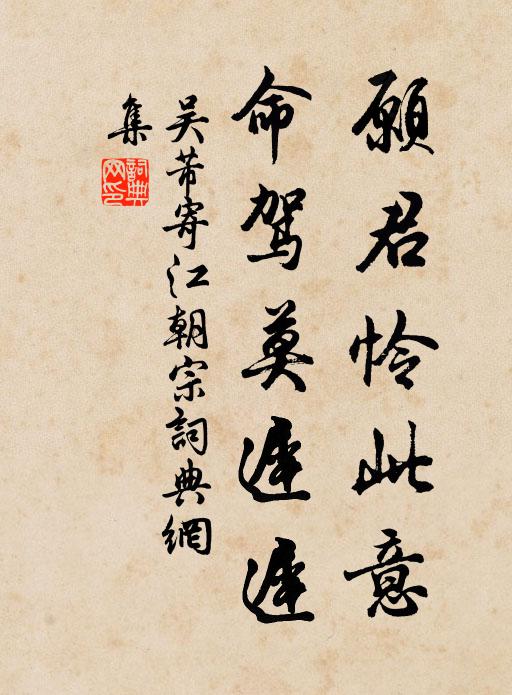 願君怜此意
命驾莫遲遲
吴芾寄江朝宗詞典網
集
詞典網印